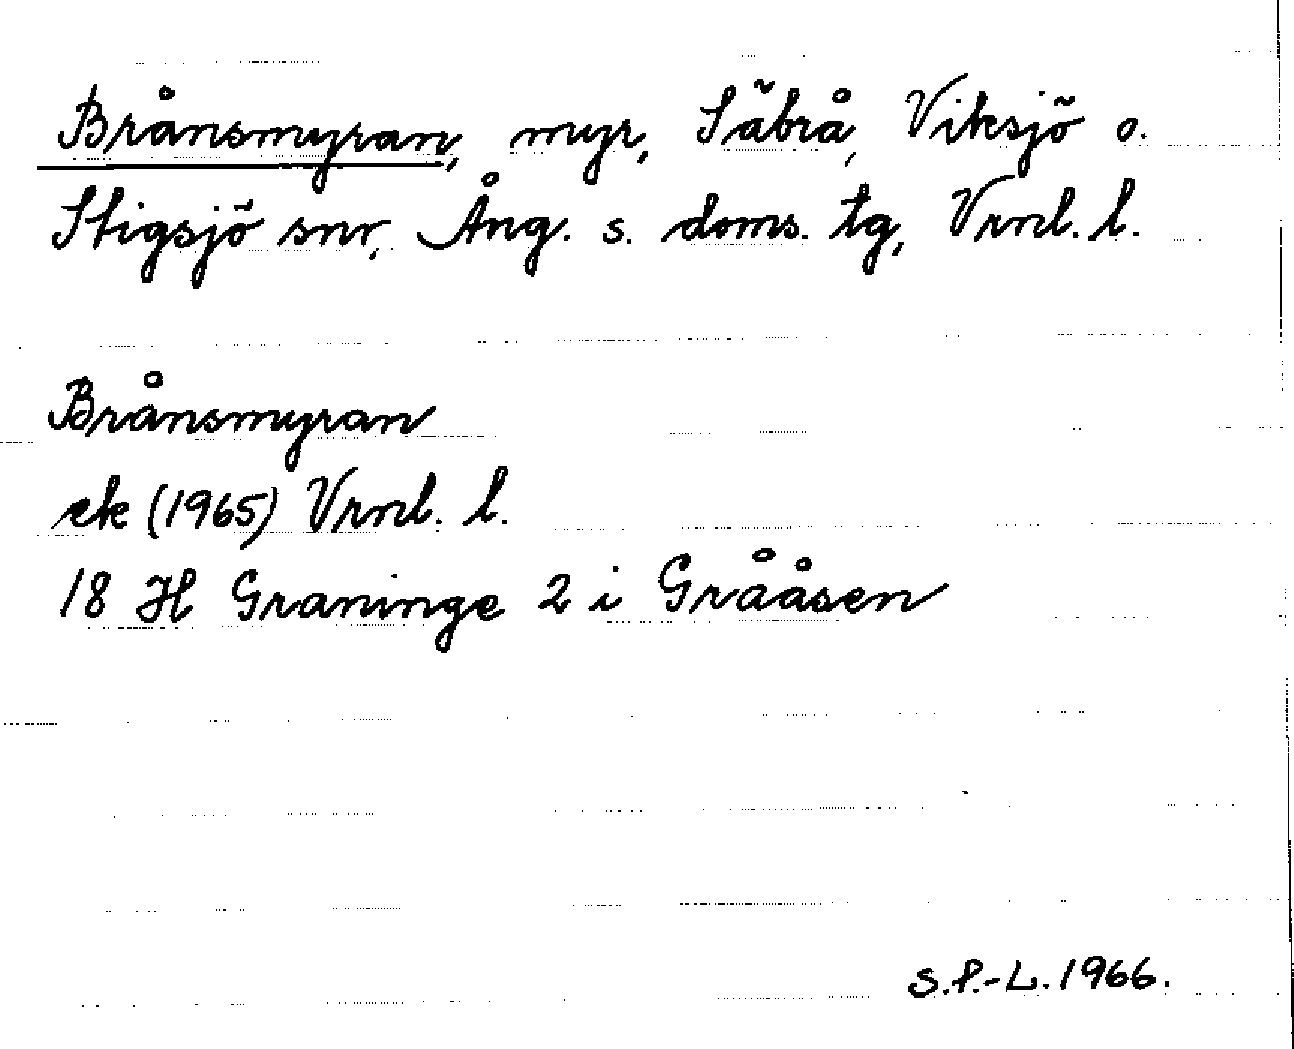 Brånsmyran, myr, Säbrå, Viksjö o.
Stigsjö snr, Ång. s. doms. tg, Vrnl. l.
Brånsmyran
ek (1965) Vrnl. l.
18 H Graninge 2 i Grååsen
S.P.-L. 1966.